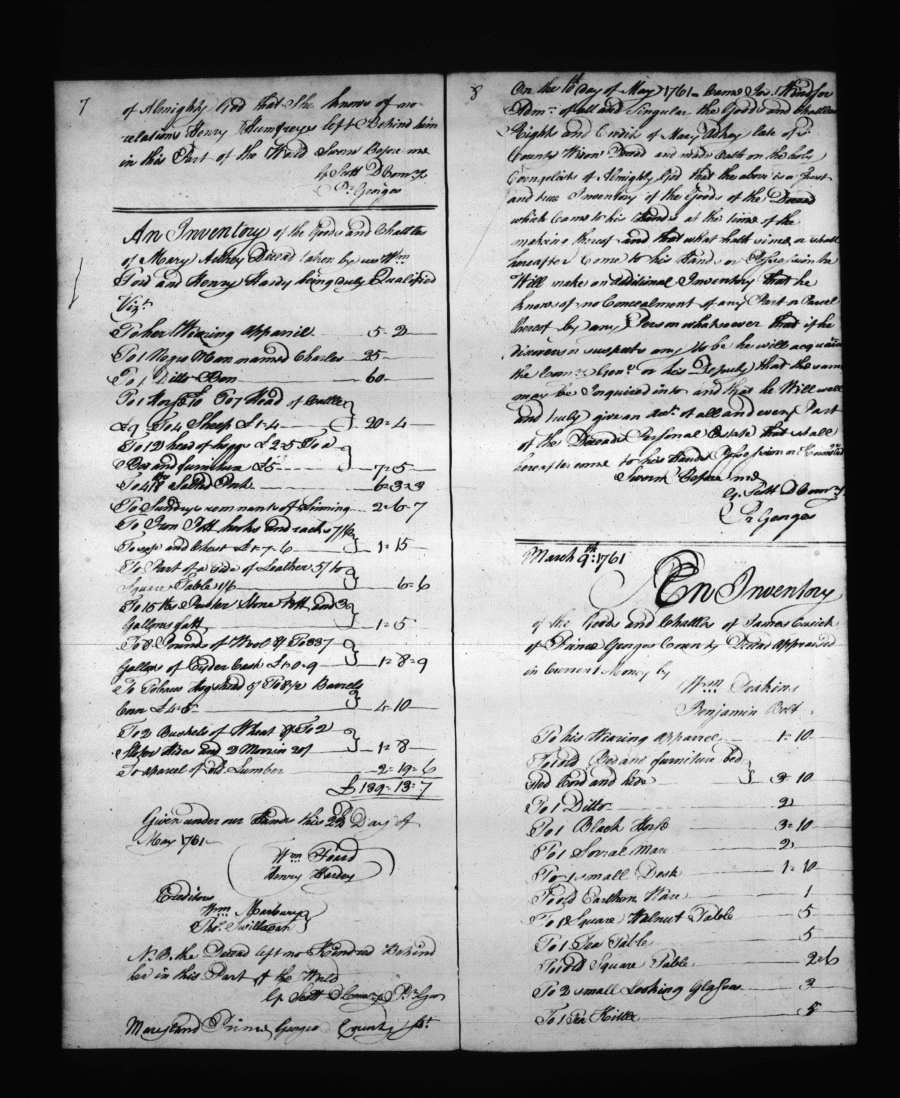 7
of Almighty God that She knows of no
relations Henry Humfreys left Behind him
in this Part of the World Sworn Before me
Gs Scott D Comry
Pr Georges
An Inventory of the Goods and Chattles
of Mary Deced taken by us Wm
Foard and Henry Hardy being duly Qualified
Vizt
To her Wearing Apparril 5 - 2
To 1 Negro Man named Charles 25
To 1 Ditto Ben 60
To 1 Horse To 7 Head of Cattle
£9 To 4 Sheep £1-4 20 - 4
To 12 head of hoggs £2-5 To a
Bed and furniture £5 7 - 5
To Salted Pork 6 - 3 - 3
To Sundrys remnants of Linning 2 - 6 - 7
To Iron Pott hooks and racks 7/6
To and Chest £1-7-6 1 - 15
To Part of a Side of Leather 5/ to
Square Table 1/6 6 - 6
To 15 lbs Pewter Stone Pott and 3
Gallons fatt 1 - 5
To 8 Pounds of Wool 8/ To 337
Gallons of Cyder Cask £1-0-9 1 - 8 - 9
To Tobacco hogshead 5/ To 8 1/2 Barrels
Corn £4-5 4 - 10
To 2 Bushels of Wheat 8/ To 2
Hides and 2 20/ 1 - 8
To a parcel of old Lumber 2 - 19 - 6
£139 - 13 - 7
Given under our Hands this 22d Day of
May 1761
Wm Foard
Henry Hardey
Creditors
Wm Marbury
Thos Swillavan
N.B. the Deced left no Kindred Behind
her in this Part of the World
Gs Scott D Comry Pr Geos
Maryland Prince Georges County Sst
8
On the Day of May 1761 Came Jos. Windsor
Admr of all and Singular the Goods and Chattles
Rights and Credits of Mary late of sd
County Widow Deced and made Oath on the holy
Evangelists of Almighty God that the above is a Just
and true Inventory of the Goods of the Deced
which Came to his Hands at the time of the
making thereof and that what hath since or shall
hereafter Come to his Hands or Possession he
Will make an additional Inventory that he
knows of no Concealment of any Part or Parcel
thereof by any Person whatsoever that if he
discovers or suspects any to be he will acquaint
the Comry Genl or his Deputy that the same
may be Inquired into and that he Will well
and truly give an Acct of all and every Part
of the Deceds Personal Estate that shall
hereafter come to his Hands Possession or Knowledge
Sworn Before me
Gs Scott D Comry
Pr Georges
March 9th: 1761
An Inventory
of the Goods and Chattles of James Cusick
of Prince Georges County Deced Appraised
in Current Money by
Wm Deakins
Benjamin Belt
To his Wearing Apparel 1 - 10
To old Bed and furniture bed
sted Cord and hide 3 - 10
To 1 Ditto 2
To 1 Black Horse 3 - 10
To 1 Sorral Mare 2
To 1 small Desk 1 - 10
To old Earthern Ware 1
To 1 Square Walnut Table 5
To 1 Tea Table 5
To old Square Table 2 - 6
To 2 small Looking Glasses 3
To 1 Tea Kittle 5